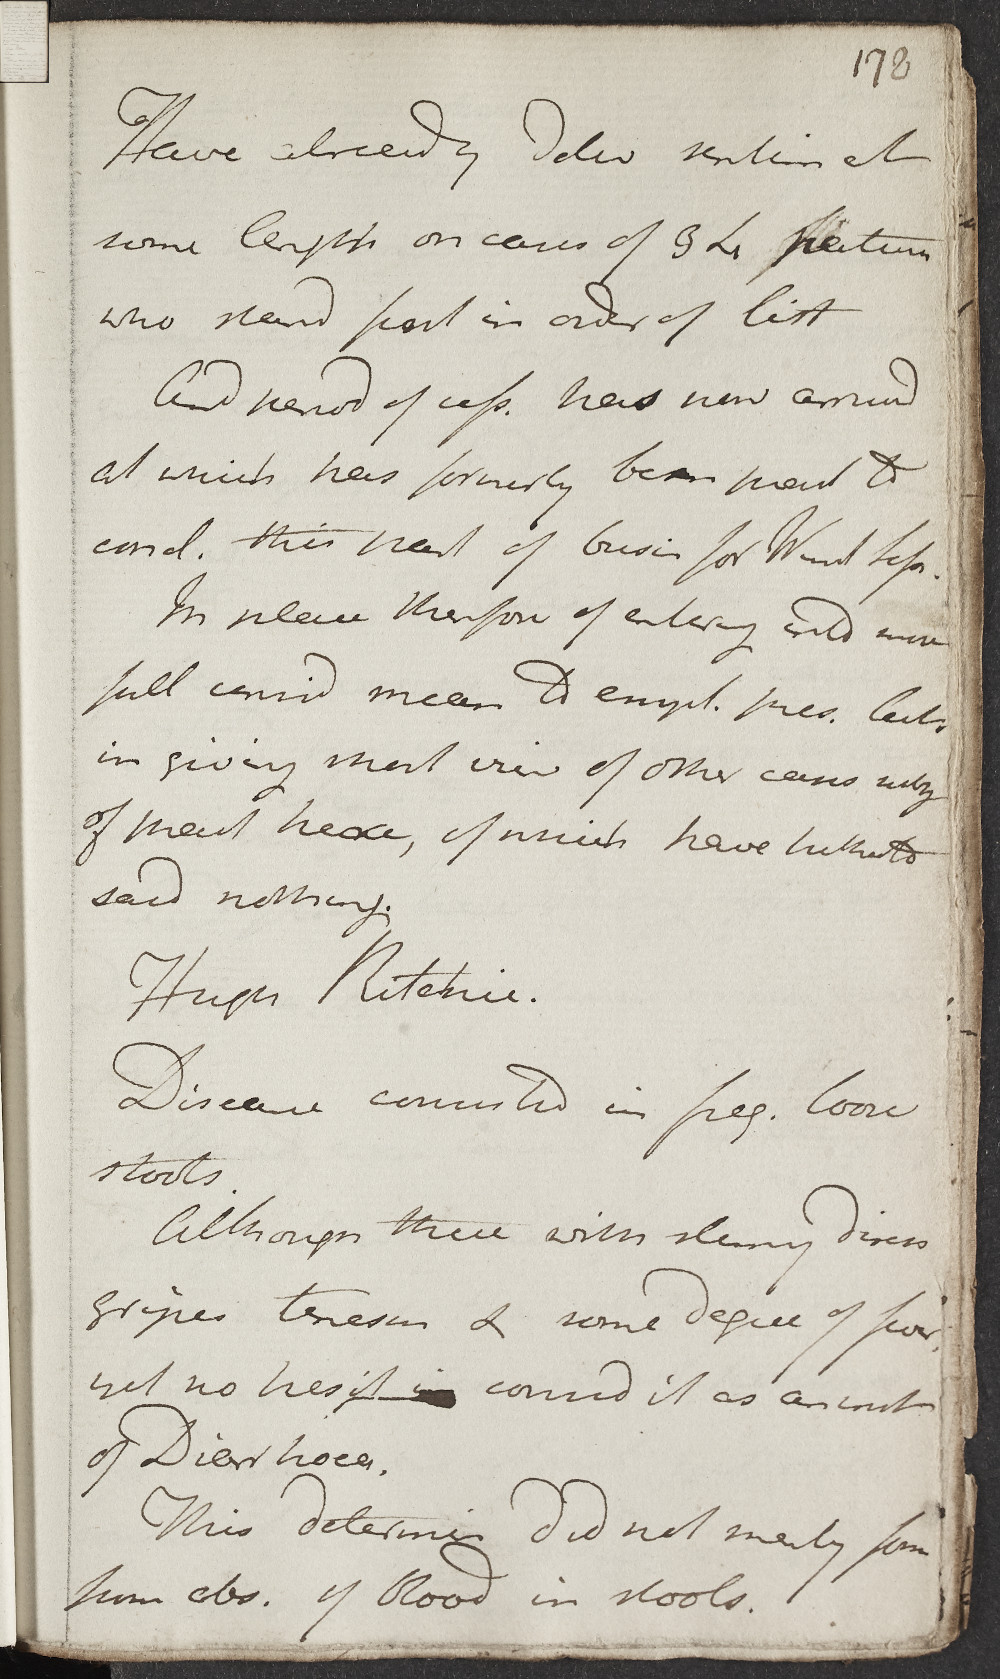 178
Have already deliv sentim at
some length on cases of 3 L patients
who stand first in order of list
And period of cess. has now arrived
at which has formerly been pract to
concl. this part of busin for Wint Sess.
In place therfore of entering into more
full consid mean to empl. pres. lect.
in giving short view of other cases subj
of pract here, of which have hitherto
said nothing.
Hugh Ritchie.
Disease consisted in freq. loose
stools.
Although these with slimy disch
gripes tenesm & some degree of fever,
yet no hesit in consid it as an inst
of Diarrhoea.
This determin did not merely form
from abs. of blood in stools.